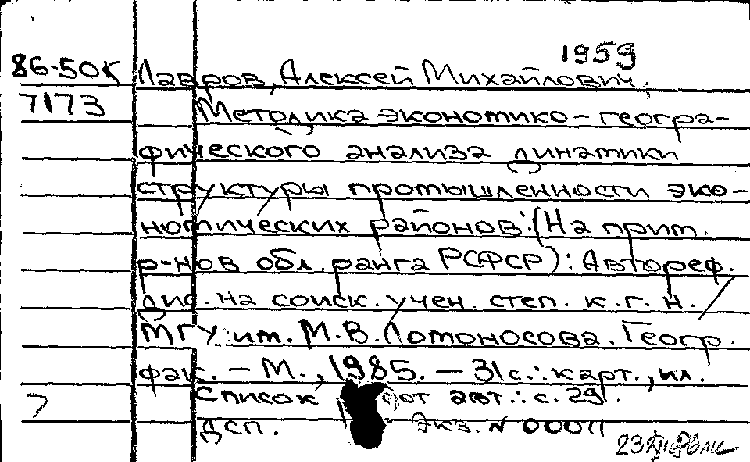 1959
86-50К Лавров, Алексей Михайлович.
7173 Методика экономико-геогра-
фического анализа динамики
структуры промышленности эко-
номических районов: (На прим.
р-нов обл. ранга РСФСР): Автореф.
дис. на соиск. учен. степ. к. г. н. /
МГУ им. М.В. Ломоносова. Геогр.
фак. - М., 1985. - 31 с.: карт., ил.
Список от авт.: с. 29.
ДСП. Экз. N 00011
23